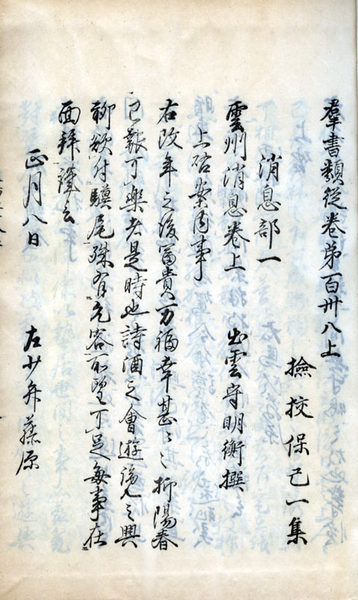 羣書類従巻第百卅八上
撿挍保己一集
消息部一
雲州消息巻上　出雲守明衡撰
上啓案内事
右改年之後富貴万福幸甚〻〻抑陽春
已報可樂者是時也詩酒之會遊覧之興
聊欲付驥尾殊有允容所望可足毎事在
面拜謹言
正月八日　左少弁藤原